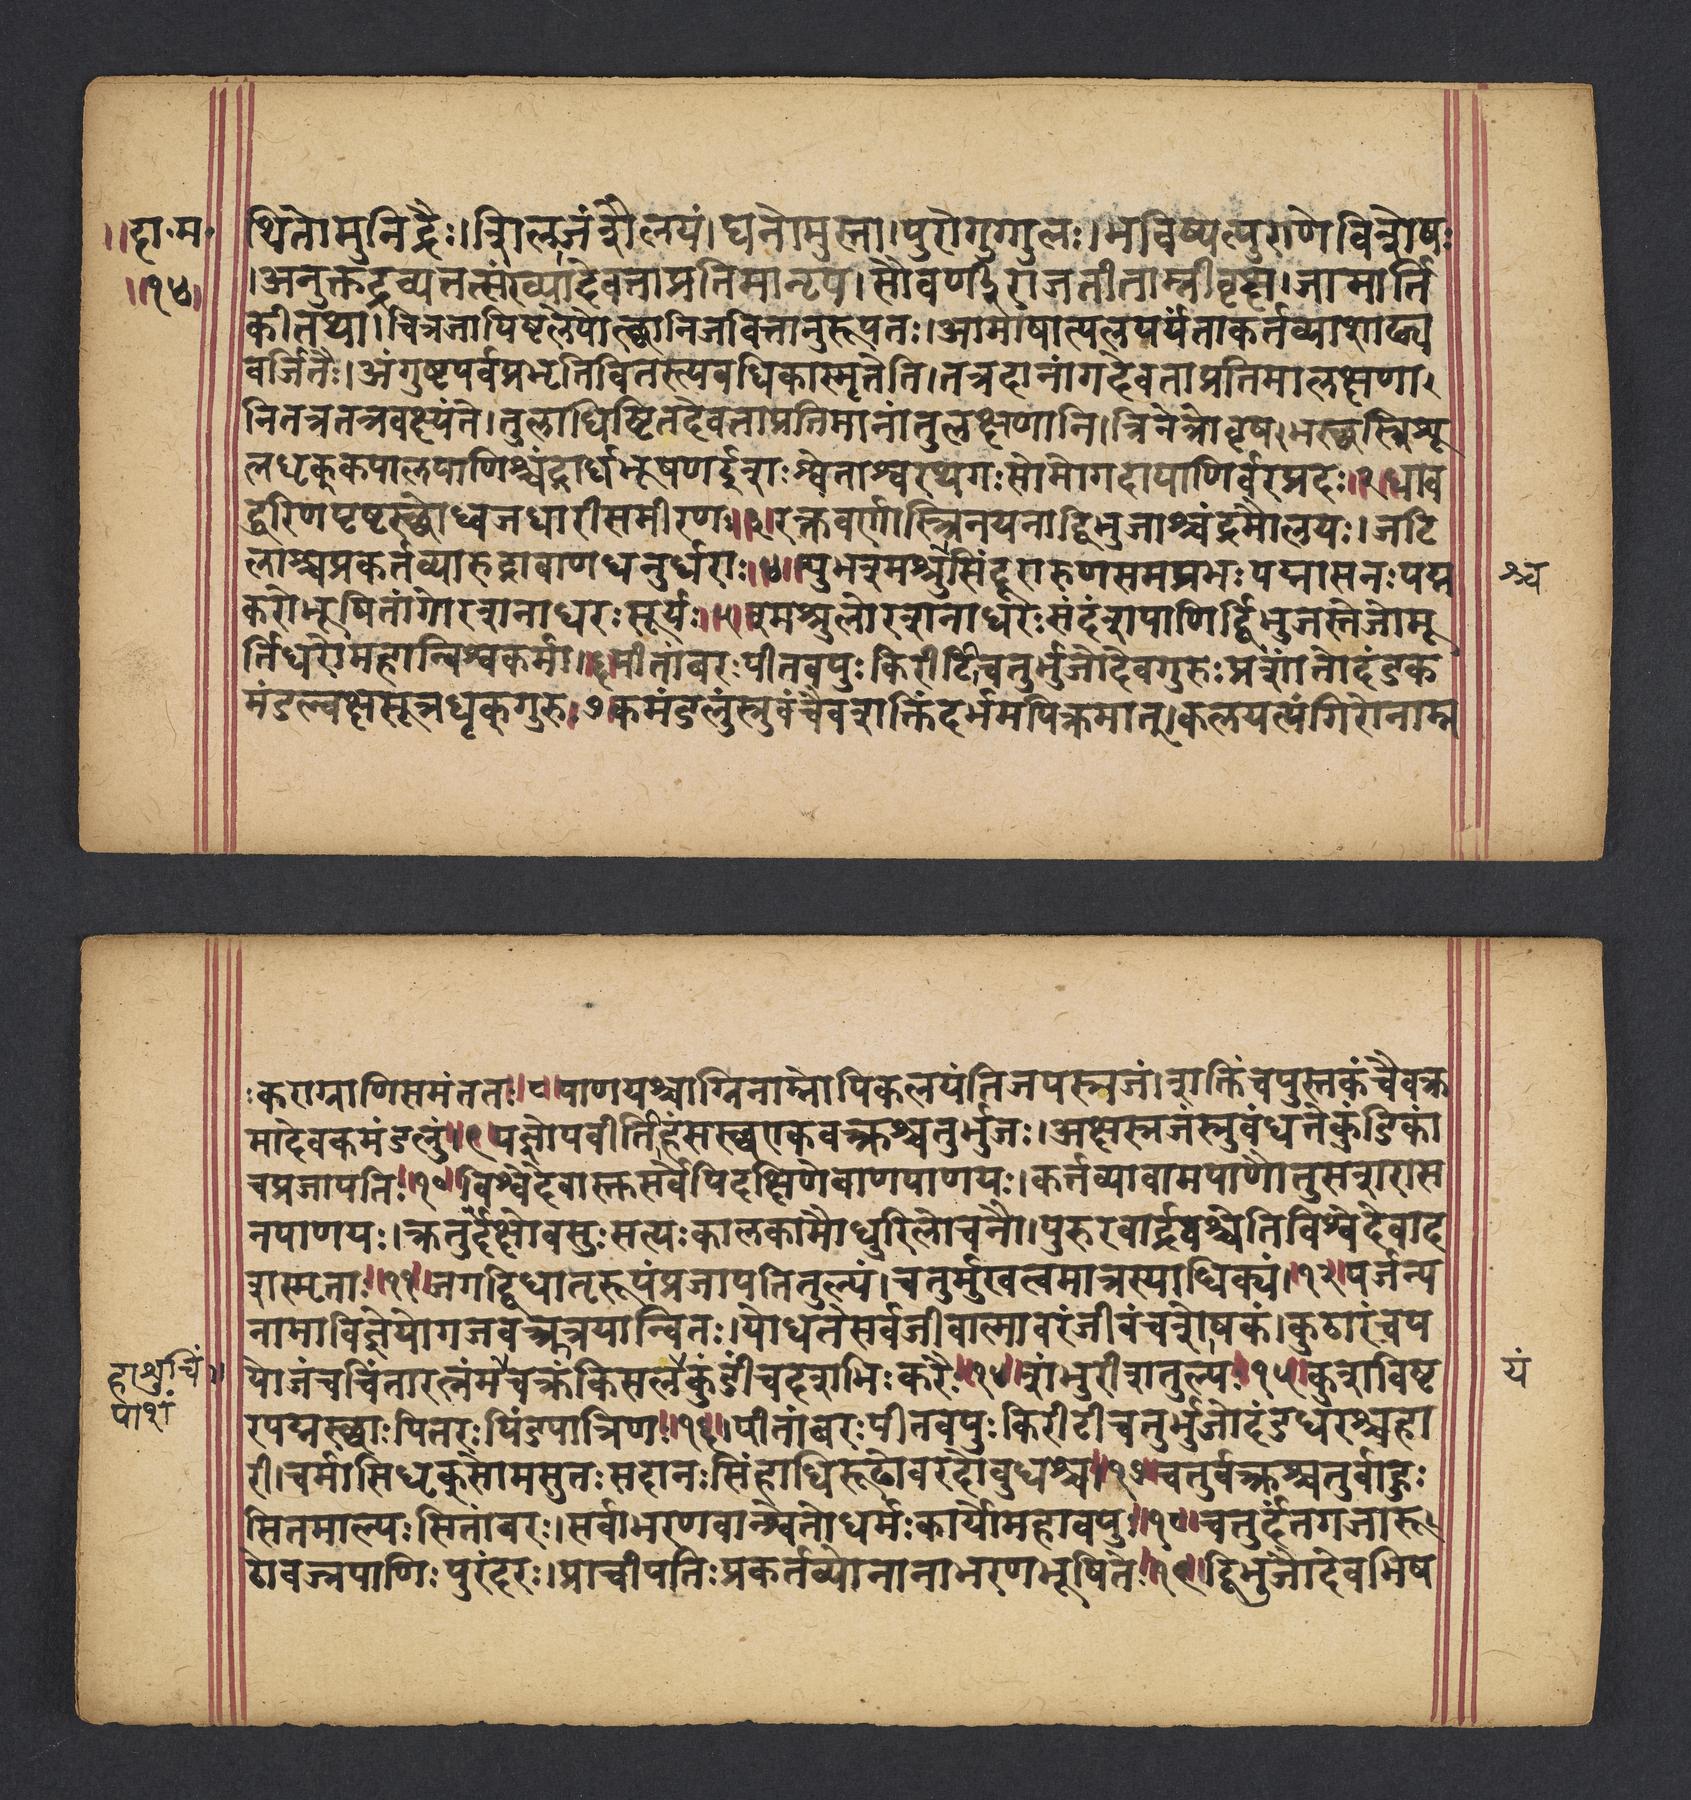 ॥दा॰म॰
॥१४॥
थितोमुनिंद्रैः।शिलजंशैलेयं।घनोमुस्ता।पुरोगुग्गुलः।भविष्यत्पुराणेविशेषः
।अनुक्तद्रव्यतत्संख्यादेवताप्रतिमानृप।सौवर्णीराजतीताम्रीवृक्षजामार्ति
कीतथा।चित्रजापिष्टलेपोत्छानिजवित्तानुरूपतः।आमाषात्पलपर्यंताकर्तव्याशाठ्य
वर्जितैः।अंगुष्टपर्वप्रभृतिवितस्त्यवधिकास्मृतेति।तत्रदानांगदेवताप्रतिमालक्षणा
नितत्रतत्रवक्ष्यंते।तुलाधिष्टितदेवताप्रतिमानांतुलक्षणानि।त्रिनेत्रोवृषभस्छस्त्रिशू
लधृक्कपालपाणिश्चंद्रार्धभूषणर्दुशःश्वेताश्वरथगःसोमोगदापाणिर्वरप्रदः॥२॥धाव
द्धरिणपृष्टस्छोध्वजधारीसमीरणः॥३॥रक्तवर्णास्त्रिनयनाद्विभुजाश्चंद्रमौलयः।जटि
लाश्चप्रकर्तव्यारुद्राबाणधनुर्धराः॥४॥शुभश्मश्रुसिंदूरारुणसमप्रभःपद्मासनःपद्म
श्च
करोभूषितांगोरशनाधरःसूर्यः॥५॥श्मश्रुलोरशनाधरःसंदंशपाणिर्द्विभुजस्तेजोमू
र्तिधरोमहान्विश्वकर्मा॥६॥पीतांबरःपीतवपुःकिरीटीचतुर्भुजोदेवगुरुःप्रशांतोदंडक
मंडल्वक्षसूत्रधृक्गुरु॥७॥कमंडलुंस्रुवंचैवशक्तिंदर्भमपिक्रमात्।कलयत्यंगिरोनाम्न
ःकराग्राणिसमंततः॥८॥पाणयश्चाग्निनाम्नोपिकलयंतिजपस्रजं।शक्तिंचपुस्तकंचैवक्र
मादेवकमंडलुं॥९॥यज्ञोपवीतीहंसस्छएकवक्त्रश्चतुर्भुजः।अक्षस्रजंस्रुवंधत्तेकुंडिकां
चप्रजापतिः॥१०॥विश्वेदेवास्तुसर्वेपिदक्षिणेबाणपाणयः।कर्त्तव्यावामपाणौतुसशरास
नपाणयः।क्रतुर्दक्षोवसुःसत्यःकालकामौधुरिलोचनौ।पुरुरवार्द्रवश्चेतिविश्वेदेवाद
शस्मृताः॥११॥जगद्विधातृरूपंप्रजापतितुल्यं।चतुर्मुखत्वमात्रस्याधिक्यं॥१२॥पर्जन्य
नामाविज्ञेयोगजवक्त्रत्रयान्वितः।योधत्तेसर्वजीवात्मावरंजीवंचशोषकं।कुठारंचप
हाश्रुचिं॥
पाशं
योजंचचिंतारत्नंमेचक्रंकिसलेकुंडींचदशभिःकरैः॥१४॥शंभुरीशतुल्यः॥१५॥कुशविष्ट
यं
रपद्मस्छाःपितरःपिंडपात्रिणः॥१६॥पीतांबरःपीतवपुःकिरीटीचतुर्भुजोदंडधरश्चहा
री।चर्मासिधृक्सोमसुतःसदानःसिंहाधिरूढोवरदोबुधश्च॥१७॥चतुर्वक्त्रश्चतुर्बाहुः
सितमाल्यःसितांबरः।सर्वाभरणवान्श्वेतोधर्मःकार्योमहावपुः॥१८॥चतुर्दंतगजारू
ढोवज्रपाणिःपुरंदरः।प्राचीपतिःप्रकर्तव्योनानाभरणभूषितः॥१९॥द्विभुजौदेवभिष